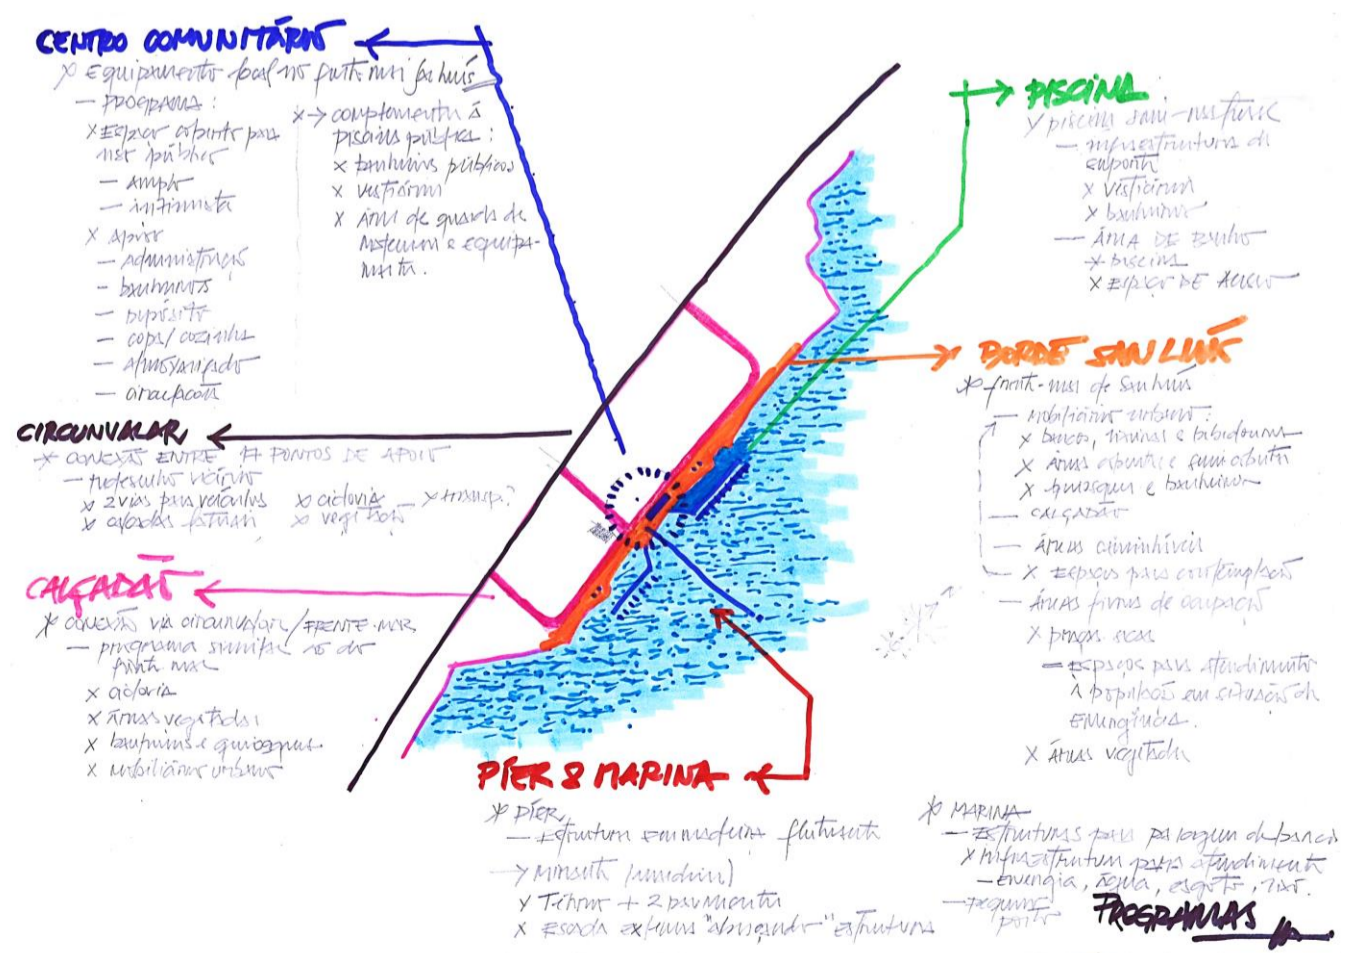 CENTRO COMUNITÁRIO
Equipamento focal no
— PROGRAMA:
x Espaço coberto para
uso público
— amplo
— intimista
x apoio
— administração
— banheiros
— depósito
— copa/cozinha
— almoxarifado
— circulação
x → complementar à
piscina pública:
x banheiros públicos
x vestiários
x área de guarda de
materiais e equipa-
mentos.
CIRCUNVALAR
CONEXÃO ENTRE PONTOS DE APOIO
— pedestres veículo
x 2 vias para veículos
x calçadas
x ciclovia
x vegetação
— x transp.?
CALÇADÃO
CONEXÃO VIA circunvalar/FRENTE-MAR
— programa similar ao do
frente mar
x ciclovia
x áreas vegetadas
x banheiros e quiosques
x mobiliário urbano
PISCINA
piscina semi-natural
— infraestrutura de
suporte
x vestiários
x banheiros
— ÁREA DE BANHO
x piscina
x ESPAÇO DE
BORDE SAN LUÍS
frente-mar de San Luís
— mobiliário urbano:
x bancos, lixeiras e bebedouros
x áreas cobertas e semicobertas
x quiosques e banheiros
— CALÇADÃO
— áreas caminháveis
x Espaços para contemplação
— áreas livres de ocupação
x praças secas
— espaços para atendimento
à população em situação de
EMERGÊNCIA.
x áreas vegetadas
PÍER & MARINA
PÍER
— Estrutura em madeira flutuante
→ Mirante
x Térreo + 2 pavimentos
x Escada externa "abraçando" estrutura
MARINA
— ESTRUTURAS para paragem de barcos
x infraestrutura para atendimento
— energia, água, esgoto, lixo.
— pequeno
porto
PROGRAMAS